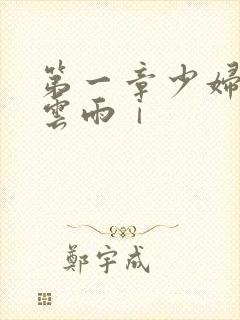 第一章少婦
雲雨｜
鄭宇成